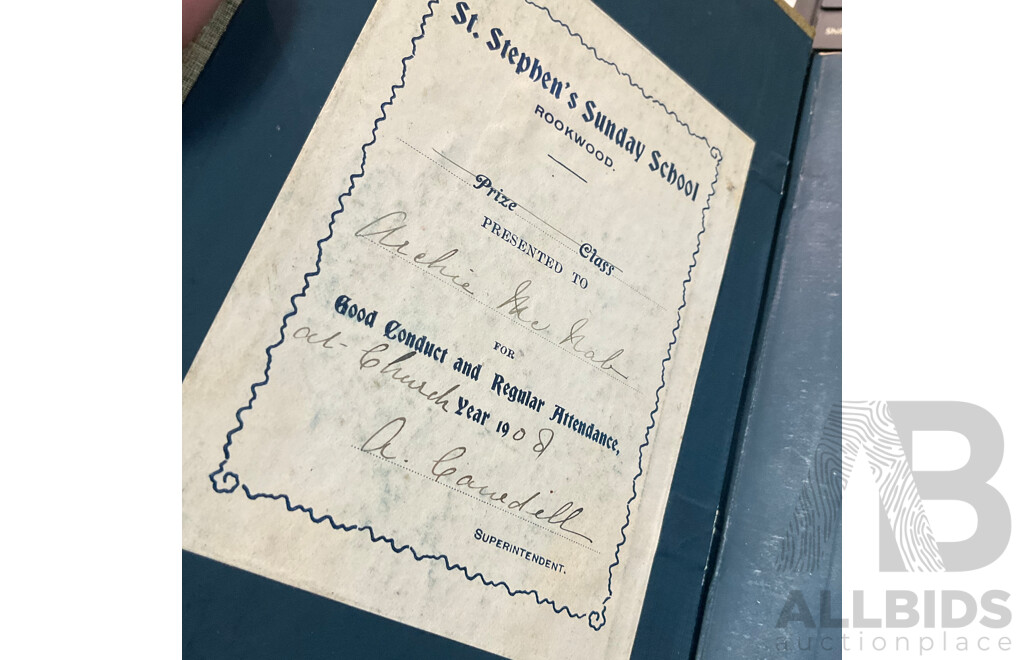 St. Stephen's Sunday School
ROOKWOOD.
Prize Class
PRESENTED TO
Archie McNab
FOR
Good Conduct and Regular Attendance,
at Church Year 1908
A.
SUPERINTENDENT.
AB
ALLBIDS
auctionplace